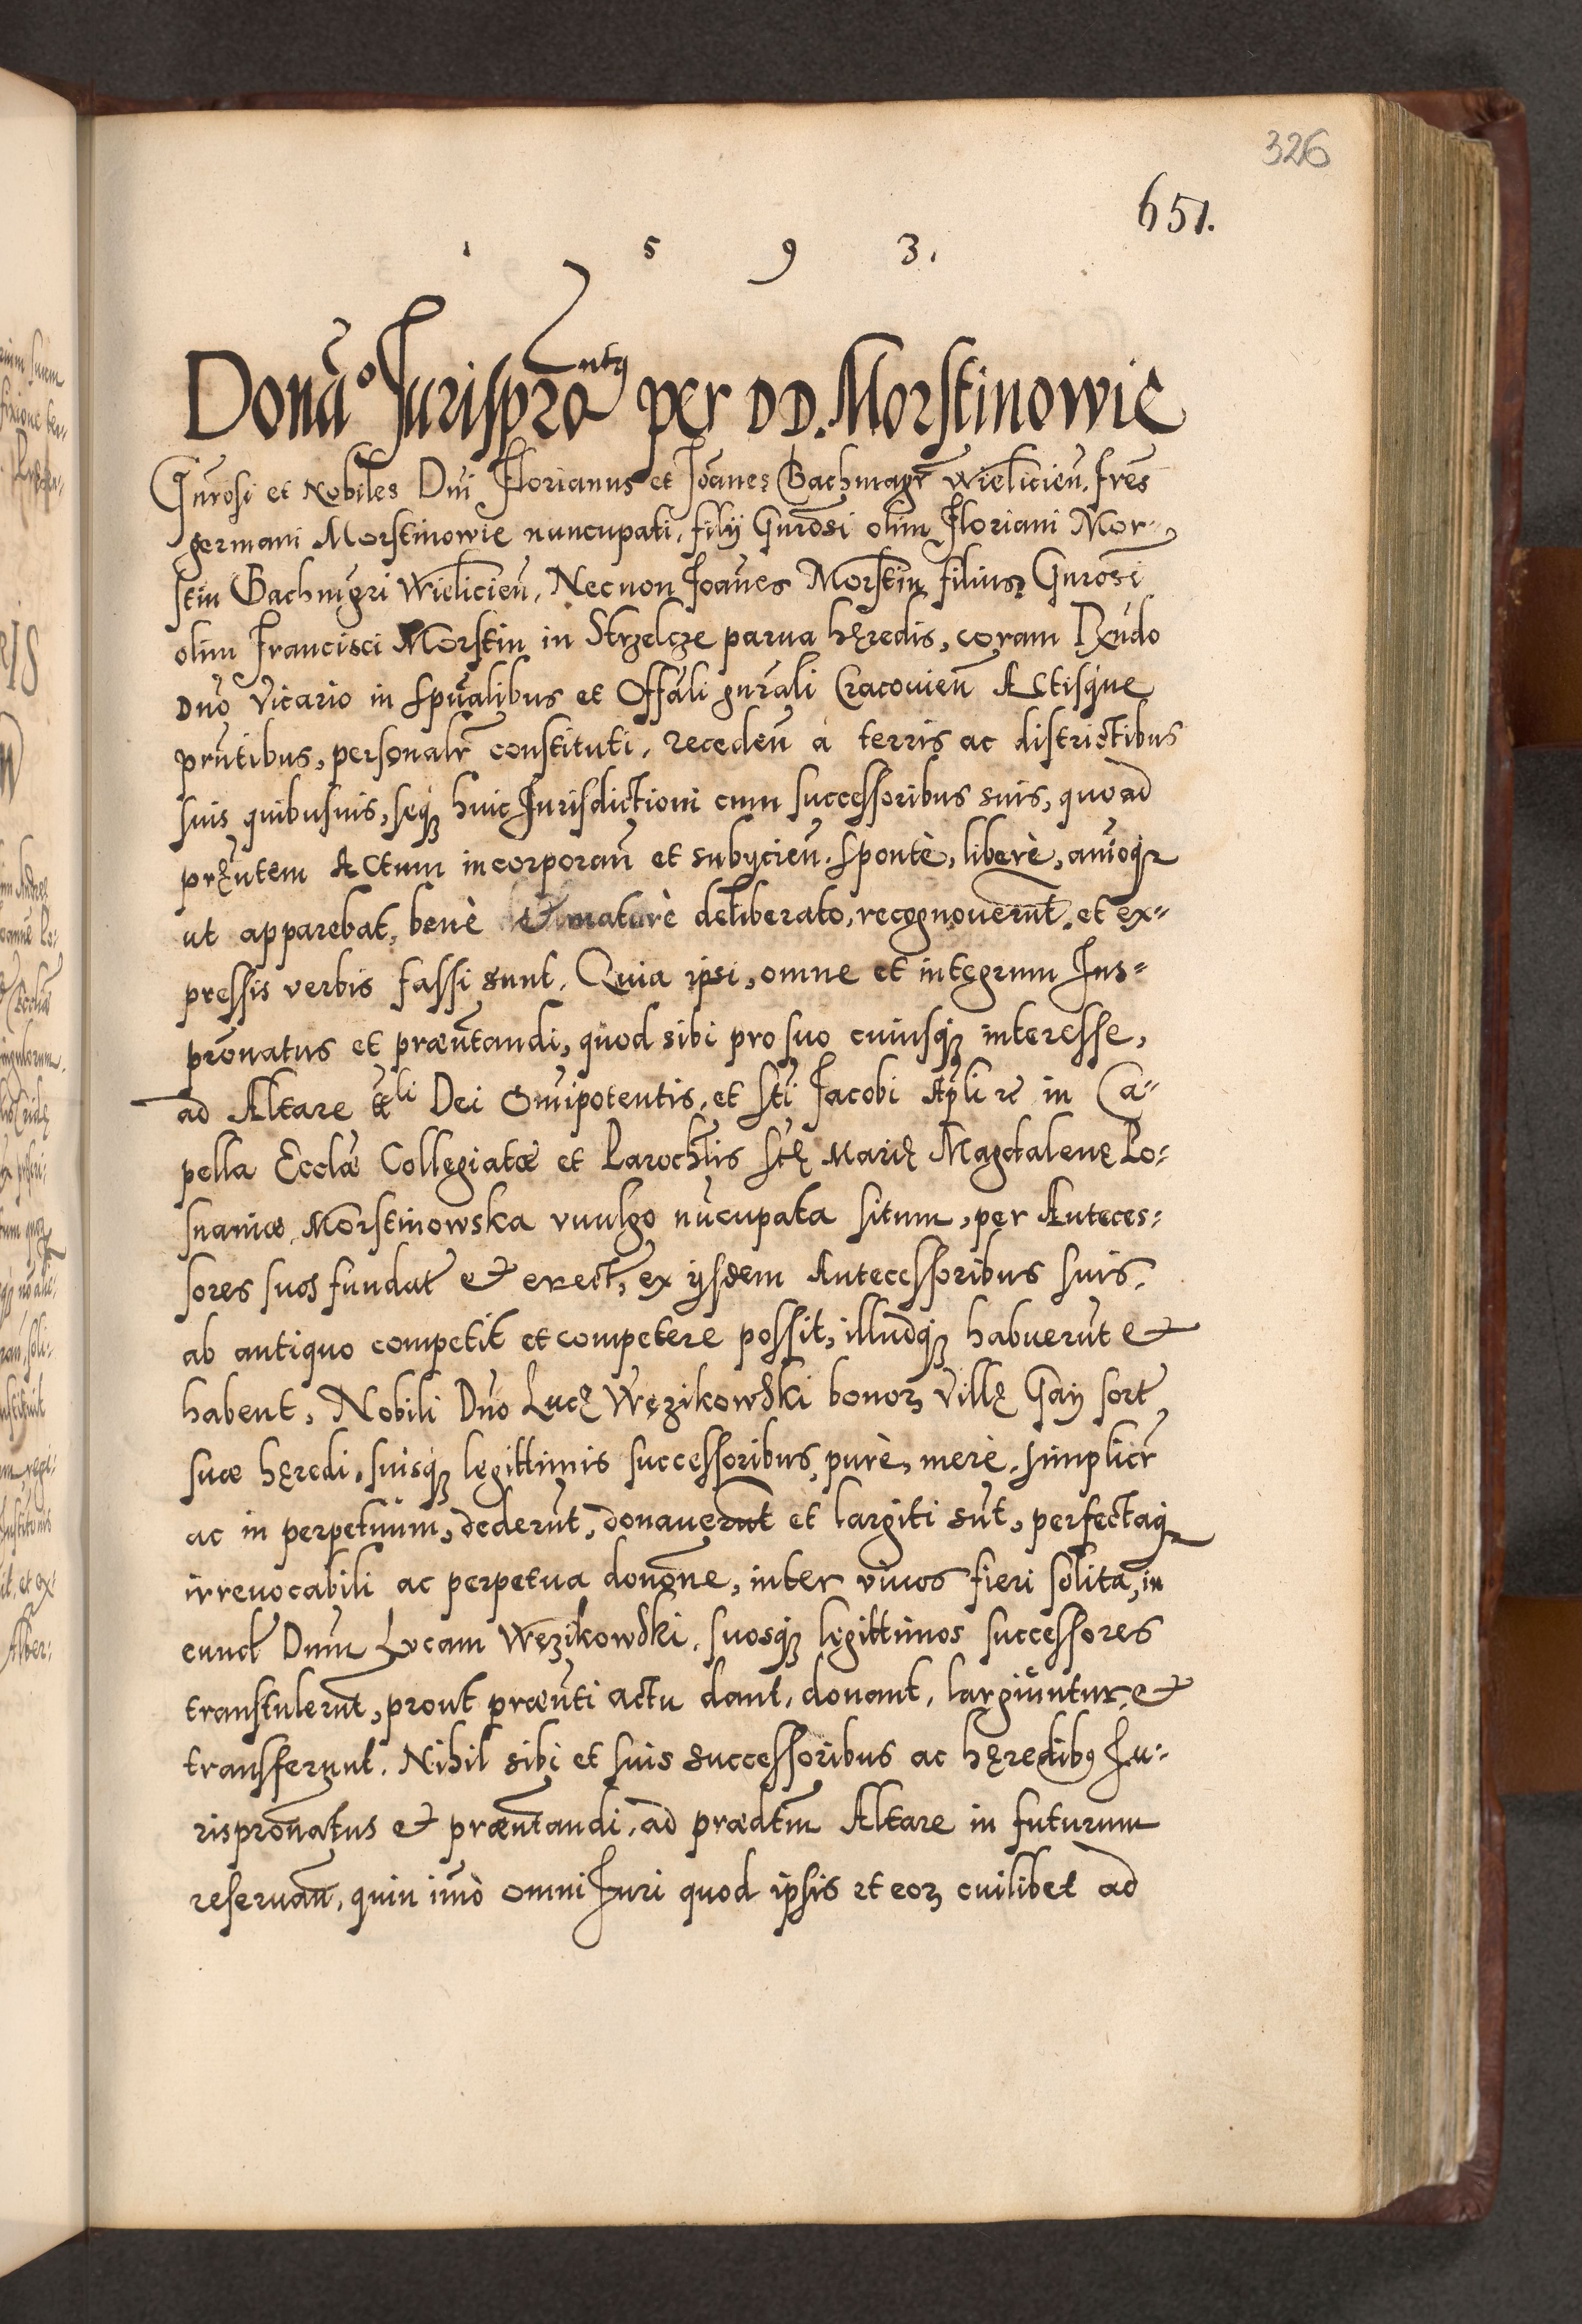 326
651.
1 5 9 3.
Donãõ Jurisprõantus per DD. Morstinowie
Gñrosi et Nobiles Dñi Florianus et Joãnes Bachmagr̃ Wielicieñ. frẽs
germani Morstinowie nuncupati, filij Gñrosi olim Floriani Mor-
stin Bachmgri Wielicieñ, Necnon Joañes Morstin filius Gñrosi
olim Francisci Morstin in Strzelcze parua hęredis, coram Rñdo
Dño Vicario in spũalibus et Offãli gñrali Cracovieñ Actisq́ue
prñtibus, personalr̃ constituti, recedeñ à terris ac districtibus
suis quibusuis, seq3 huic Jurisdictioni cum successoribus suis, quo ad
pręñtem Actum incorporañ et subijcieñ. spontè, liberè, aĩoq3
ut apparebat, benè et maturè deliberato, recognouerũnt, et ex-
pressis verbis fassi sunt. Quia ipsi, omne et integrum Jus-
prõnatus et præñtandi, quod sibi pro suo cuiusq3 interesse,
ad Altare tt̃li Dei Omĩpotentis, et Sti Jacobi Apli re in Ca-
pella Ecclæ̃ Collegiatæ et Parochlis Stę Marię Magdalenę Po-
snaniæ, Morstinowska vuulgo nũcupata situm, per Anteces-
sores suos fundat̃ et erect̃, ex ijsdem Antecessoribus suis,
ab antiquo competit et competere possit, illudq3 habuerũt et
habent, Nobili Dño Lucę Węzikowski bonor3 villę Gay sort̃
suæ hęredi, suisq3 legittimis successoribus, purè, merè, simplicr̃
ac in perpetuum, dederũt, donauerunt et largiti sũt, perfectaq3
irreuocabili ac perpetua donõne, inter viuos fieri solita, in
eund̃ Dnm̃ Lucam Węzikowski, suosq3 legittimos successores
transtulerũt, prout præñti actu dant, donant, largiũntur, et
transferunt. Nihil sibi et suis successoribus ac hęredib9 Ju-
risprõnatus et præñtandi, ad prædtm̃ Altare in futurum
reseruañ, quin imò omni Juri quod ipsis et eor3 cuilibet ad